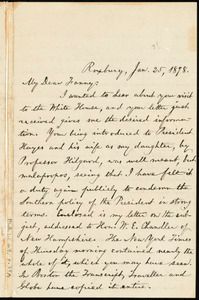 Roxbury, Jan. 25, 1878.
My Dear Fanny:
I wanted to hear about your visit
to the White House, and your letter just
received gives me the desired informa-
tion. Your being introduced to President
Hayes and his wife as my daughter, by
Professor Hilgard, was well meant, but
malapropos, seeing that I have felt it
a duty again publicly to condemn the
Southern policy of the President in strong
terms. Enclosed is my letter on the sub-
ject, addressed to Hon. W. E. Chandler of
New Hampshire. The New York Times
of Thursday morning contained nearly the
whole of it, which you may have seen.
In Boston the Transcript, Traveller and
Globe have copied it entire.